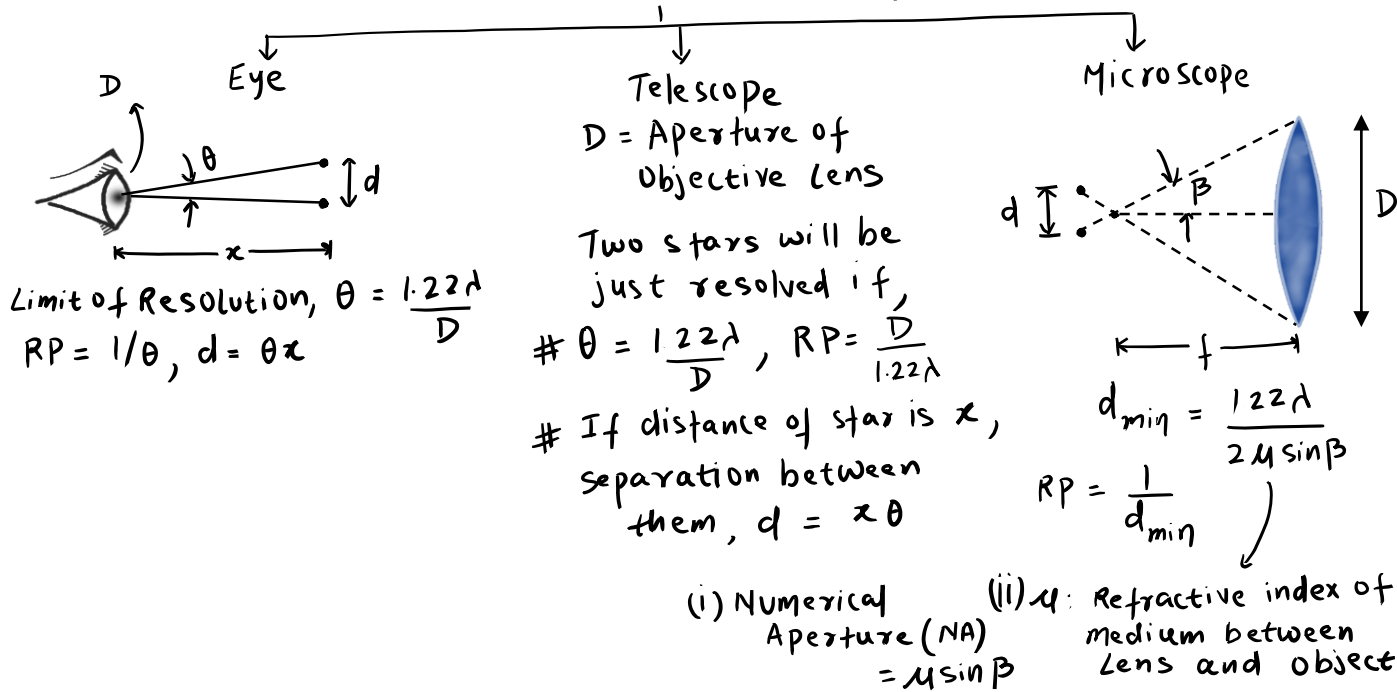 Eye
D
θ
d
x
Limit of Resolution, θ = 1.22λ / D
RP = 1/θ, d = θx
Telescope
D = Aperture of
Objective Lens
Two stars will be
just resolved if,
# θ = 1.22λ / D, RP = D / 1.22λ
# If distance of star is x,
separation between
them, d = xθ
Microscope
d
β
D
f
d min = 122λ / 2μsinβ
RP = 1 / d min
(i) Numerical
Aperture (NA)
= μsinβ
(ii) μ: Refractive index of
medium between
Lens and object